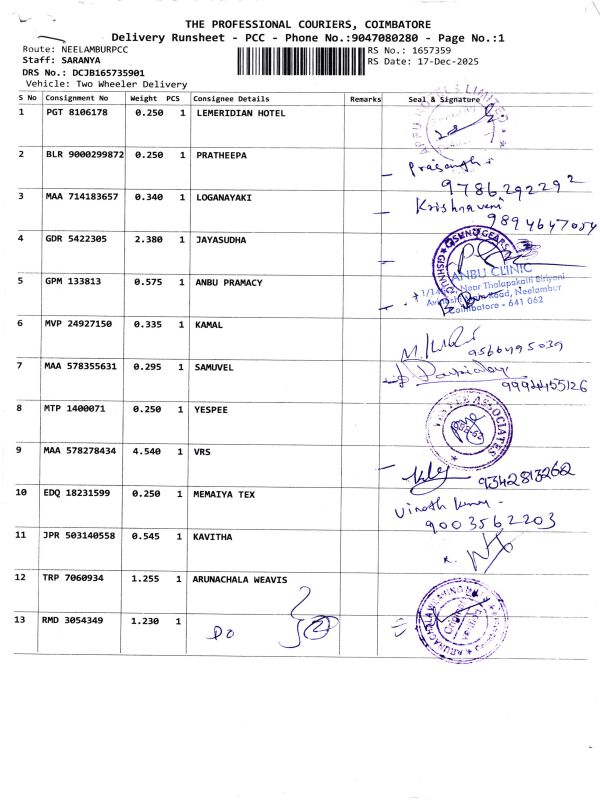 THE PROFESSIONAL COURIERS, COIMBATORE
Delivery Runsheet - PCC - Phone No.:9047080280 - Page No.:1
Route: NEELAMBURPCC RS No.: 1657359
Staff: SARANYA RS Date: 17-Dec-2025
DRS No.: DCJB165735901
Vehicle: Two Wheeler Delivery
S No Consignment No Weight PCS Consignee Details Remarks Seal & Signature
1 PGT 8106178 0.250 1 LEMERIDIAN HOTEL
2 BLR 9000299872 0.250 1 PRATHEEPA
9786292292
3 MAA 714183657 0.340 1 LOGANAYAKI
Krishnaveni
9894647054
4 GDR 5422305 2.380 1 JAYASUDHA
5 GPM 133813 0.575 1 ANBU PRAMACY
ANBU CLINIC
Near Thalapakatti Biriyani
Road, Neelambur
Coimbatore - 641 062
6 MVP 24927150 0.335 1 KAMAL
9566495039
7 MAA 578355631 0.295 1 SAMUVEL
9994455126
8 MTP 1400071 0.250 1 YESPEE
YESPEE ASSOCIATES
9 MAA 578278434 4.540 1 VRS
9342813262
10 EDQ 18231599 0.250 1 MEMAIYA TEX
Vinoth
9003562203
11 JPR 503140558 0.545 1 KAVITHA
12 TRP 7060934 1.255 1 ARUNACHALA WEAVIS
13 RMD 3054349 1.230 1 DO
2